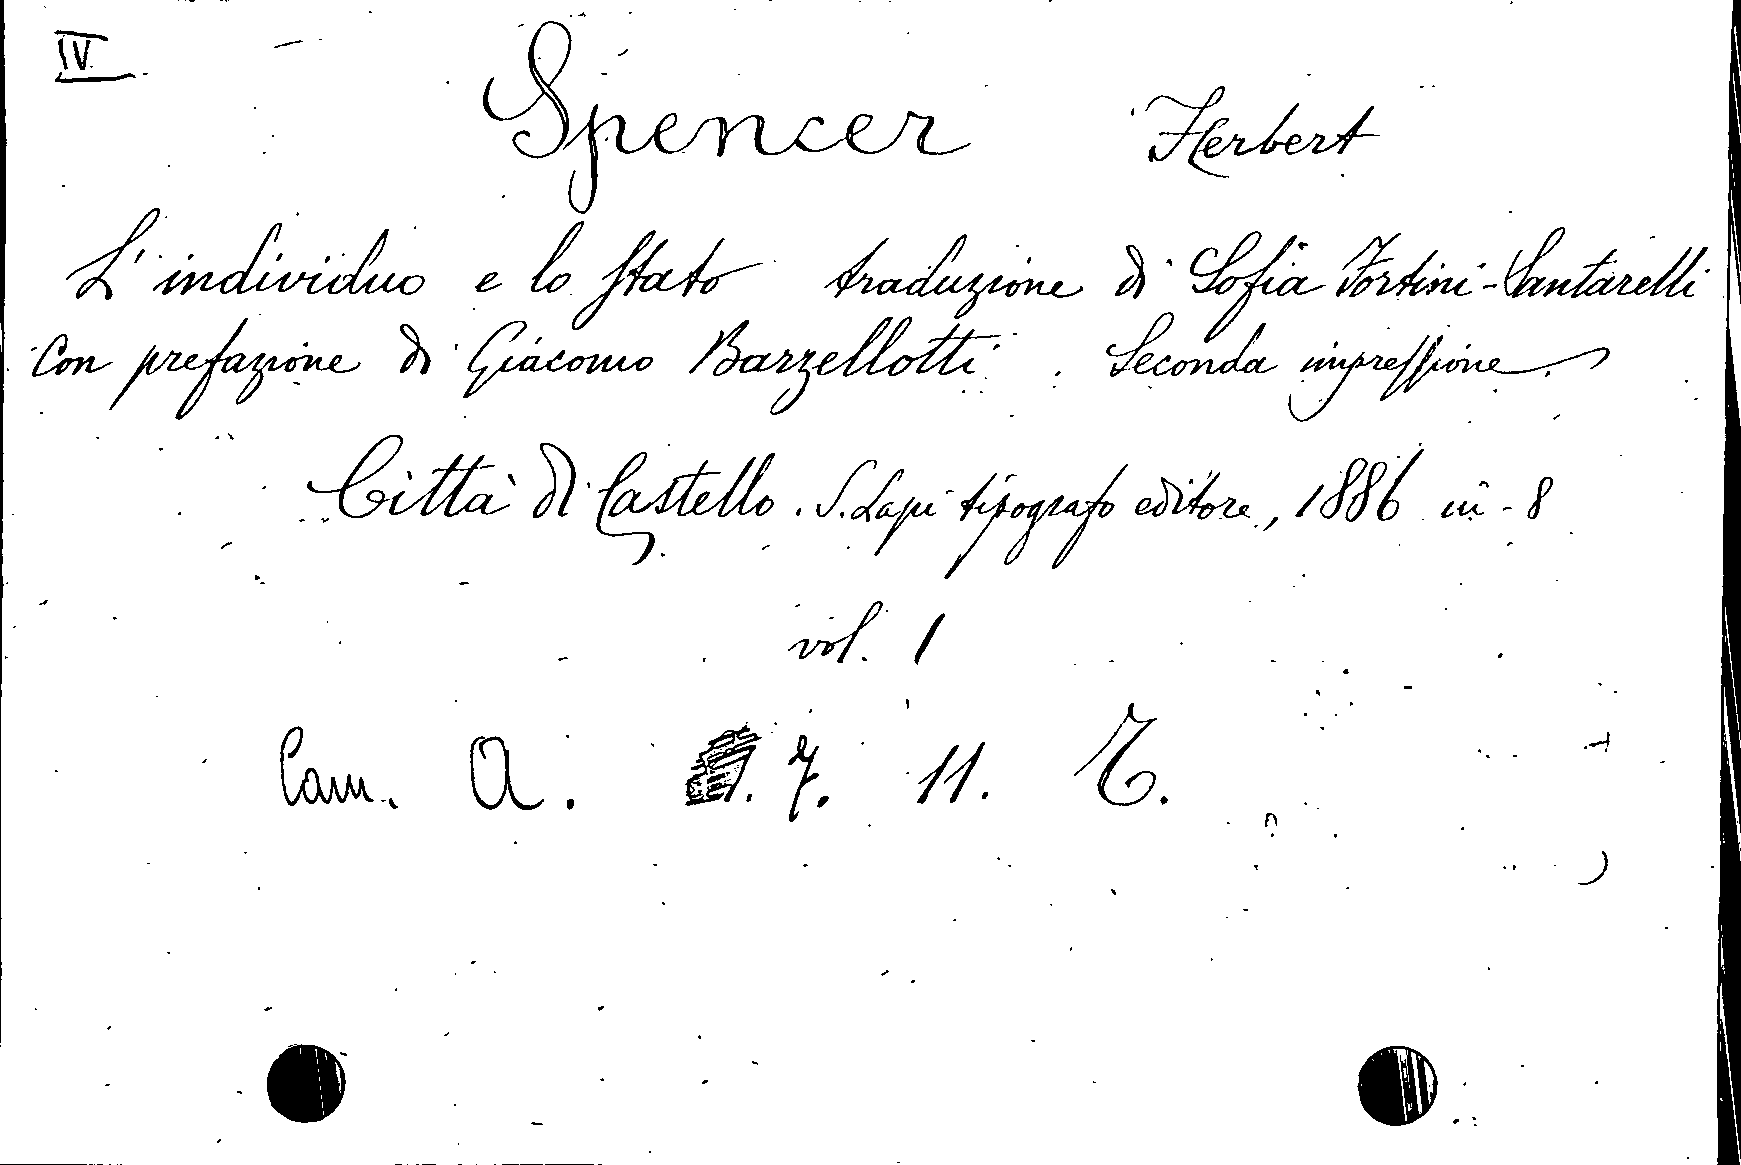 IV
Spencer Herbert
L'individuo e lo Stato traduzione di Sofia Fortini-Santarelli
Con prefazione di Giacomo Barzellotti. Seconda impressione.
Città di Castello. S. Lapi tipografo editore, 1886 in-8
vol. 1
Cam. A. 7. 11.